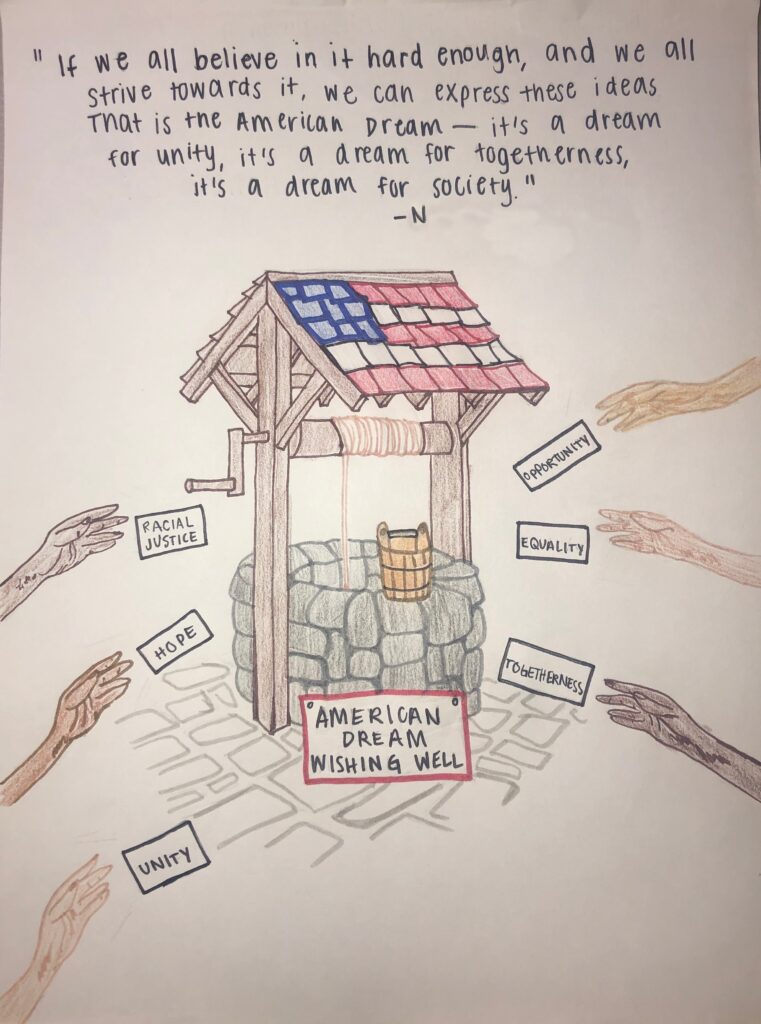 " If we all believe in it hard enough, and we all
strive towards it, we can express these ideas
That is the American Dream — it's a dream
for unity, it's a dream for togetherness,
it's a dream for society."
-N
OPPORTUNITY
RACIAL
JUSTICE
EQUALITY
HOPE
TOGETHERNESS
"AMERICAN
DREAM
WISHING WELL"
UNITY